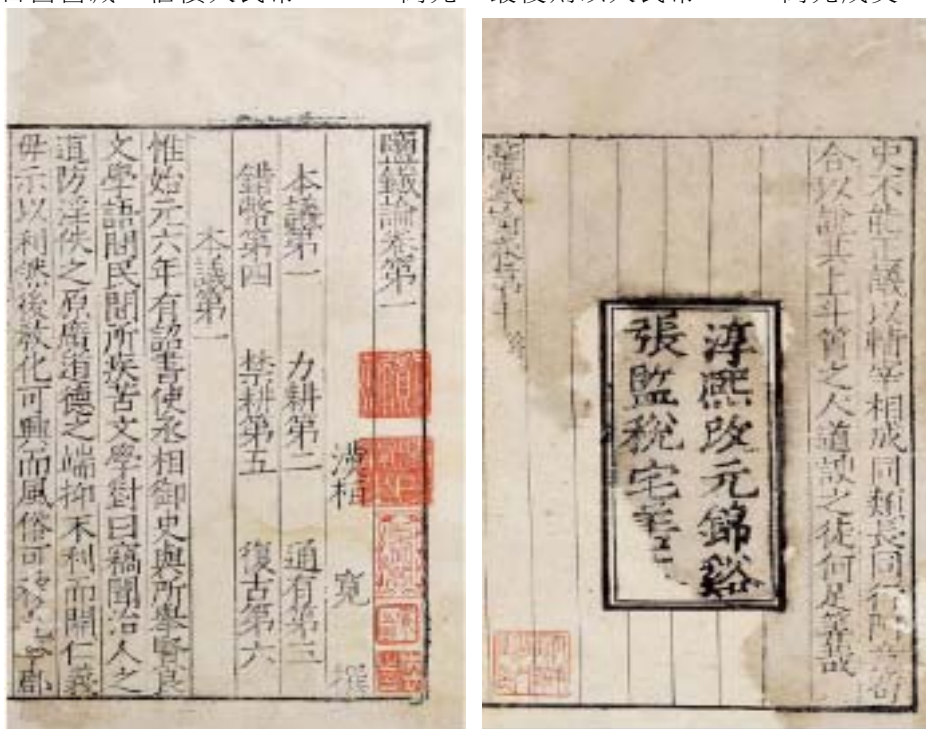 鹽鐵論卷第一
漢桓 寬 撰
本議第一 力耕第二 通有第三
錯幣第四 禁耕第五 復古第六
本議第一
惟始元六年有詔書使丞相御史與所舉賢良
文學語問民間所疾苦文學對曰竊聞治人之
道防淫佚之原廣道德之端抑末利而開仁義
毋示以利然後教化可興而風俗可
史不能正議以轄宰相成同類長同行阿意苟
合以說其上斗筲之人道諛之徒何足算哉
淳熙改元錦谿
張監稅宅